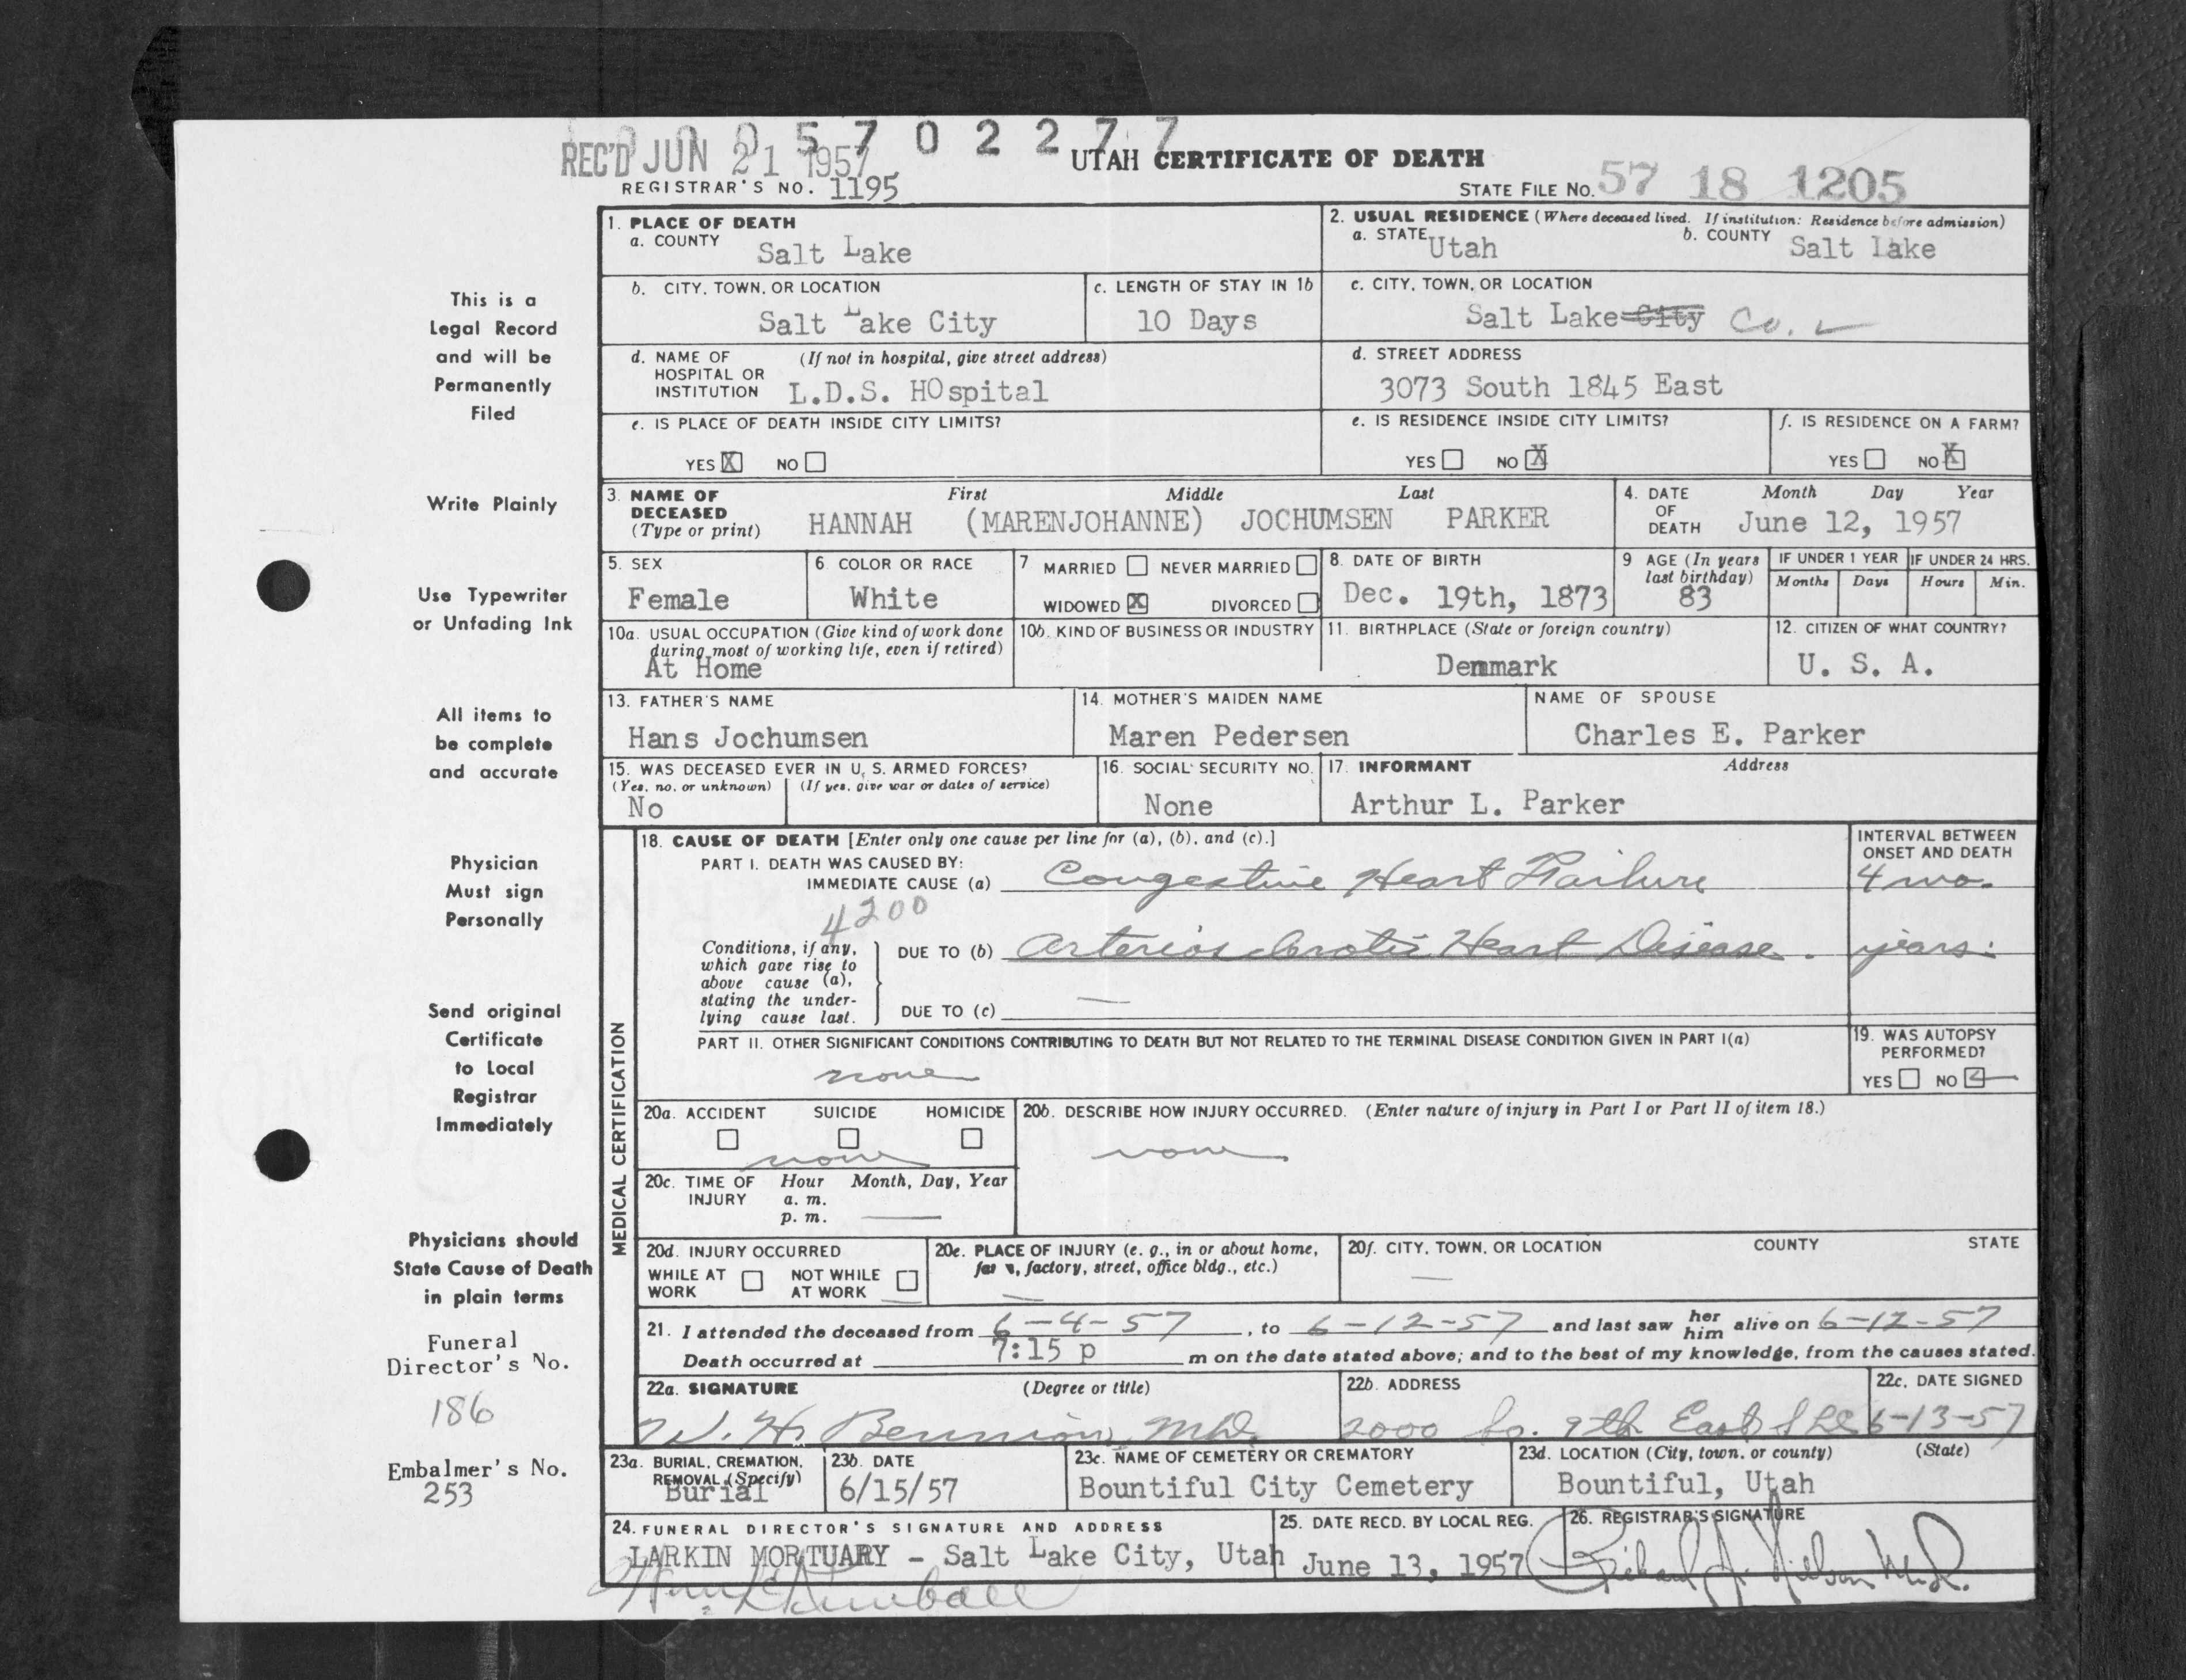 0 0 0 5 7 0 2 2 7 7
REC'D JUN 21 1957
UTAH CERTIFICATE OF DEATH
REGISTRAR'S NO. 1195
STATE FILE NO. 57 18 1205
1. PLACE OF DEATH
a. COUNTY Salt Lake
2. USUAL RESIDENCE (Where deceased lived. If institution: Residence before admission)
a. STATE Utah b. COUNTY Salt lake
b. CITY, TOWN, OR LOCATION
Salt Lake City
c. LENGTH OF STAY IN 1b
10 Days
c. CITY, TOWN, OR LOCATION
Salt Lake City Co.
d. NAME OF HOSPITAL OR INSTITUTION (If not in hospital, give street address)
L.D.S. HOspital
d. STREET ADDRESS
3073 South 1845 East
e. IS PLACE OF DEATH INSIDE CITY LIMITS?
YES X NO
e. IS RESIDENCE INSIDE CITY LIMITS?
YES NO X
f. IS RESIDENCE ON A FARM?
YES NO X
3. NAME OF DECEASED (Type or print)
First Middle Last
HANNAH (MARENJOHANNE) JOCHUMSEN PARKER
4. DATE OF DEATH
Month Day Year
June 12, 1957
5. SEX
Female
6. COLOR OR RACE
White
7 MARRIED NEVER MARRIED
WIDOWED X DIVORCED
8. DATE OF BIRTH
Dec. 19th, 1873
9 AGE (In years last birthday)
83
IF UNDER 1 YEAR
Months Days
IF UNDER 24 HRS.
Hours Min.
10a. USUAL OCCUPATION (Give kind of work done during most of working life, even if retired)
At Home
10b. KIND OF BUSINESS OR INDUSTRY
11. BIRTHPLACE (State or foreign country)
Denmark
12. CITIZEN OF WHAT COUNTRY?
U. S. A.
13. FATHER'S NAME
Hans Jochumsen
14. MOTHER'S MAIDEN NAME
Maren Pedersen
NAME OF SPOUSE
Charles E. Parker
15. WAS DECEASED EVER IN U. S. ARMED FORCES?
(Yes, no, or unknown) (If yes, give war or dates of service)
No
16. SOCIAL SECURITY NO.
None
17. INFORMANT Address
Arthur L. Parker
MEDICAL CERTIFICATION
18. CAUSE OF DEATH [Enter only one cause per line for (a), (b), and (c).]
INTERVAL BETWEEN ONSET AND DEATH
PART I. DEATH WAS CAUSED BY:
IMMEDIATE CAUSE (a) Congestive Heart Failure 4 mo.
4200
Conditions, if any, which gave rise to above cause (a), stating the underlying cause last.
DUE TO (b) Arteriosclerotic Heart Disease. years.
DUE TO (c) —
PART II. OTHER SIGNIFICANT CONDITIONS CONTRIBUTING TO DEATH BUT NOT RELATED TO THE TERMINAL DISEASE CONDITION GIVEN IN PART I(a)
none
19. WAS AUTOPSY PERFORMED?
YES NO
20a. ACCIDENT SUICIDE HOMICIDE
none
20b. DESCRIBE HOW INJURY OCCURRED. (Enter nature of injury in Part I or Part II of item 18.)
none
20c. TIME OF INJURY Hour Month, Day, Year
a. m.
p. m. —
20d. INJURY OCCURRED
WHILE AT WORK NOT WHILE AT WORK
20e. PLACE OF INJURY (e. g., in or about home, farm, factory, street, office bldg., etc.)
20f. CITY, TOWN, OR LOCATION COUNTY STATE
21. I attended the deceased from 6-4-57, to 6-12-57 and last saw her him alive on 6-12-57
Death occurred at 7:15 p m on the date stated above; and to the best of my knowledge, from the causes stated.
22a. SIGNATURE (Degree or title)
W. H. Bennion, M.D.
22b. ADDRESS
2000 So. 9th East SLC
22c. DATE SIGNED
6-13-57
23a. BURIAL, CREMATION, REMOVAL (Specify)
Burial
23b. DATE
6/15/57
23c. NAME OF CEMETERY OR CREMATORY
Bountiful City Cemetery
23d. LOCATION (City, town, or county) (State)
Bountiful, Utah
24. FUNERAL DIRECTOR'S SIGNATURE AND ADDRESS
LARKIN MORTUARY - Salt Lake City, Utah
Kimball
25. DATE RECD. BY LOCAL REG.
June 13, 1957
26. REGISTRAR'S SIGNATURE
Richard A. Nilson M.D.
This is a
Legal Record
and will be
Permanently
Filed
Write Plainly
Use Typewriter
or Unfading Ink
All items to
be complete
and accurate
Physician
Must sign
Personally
Send original
Certificate
to Local
Registrar
Immediately
Physicians should
State Cause of Death
in plain terms
Funeral
Director's No.
186
Embalmer's No.
253